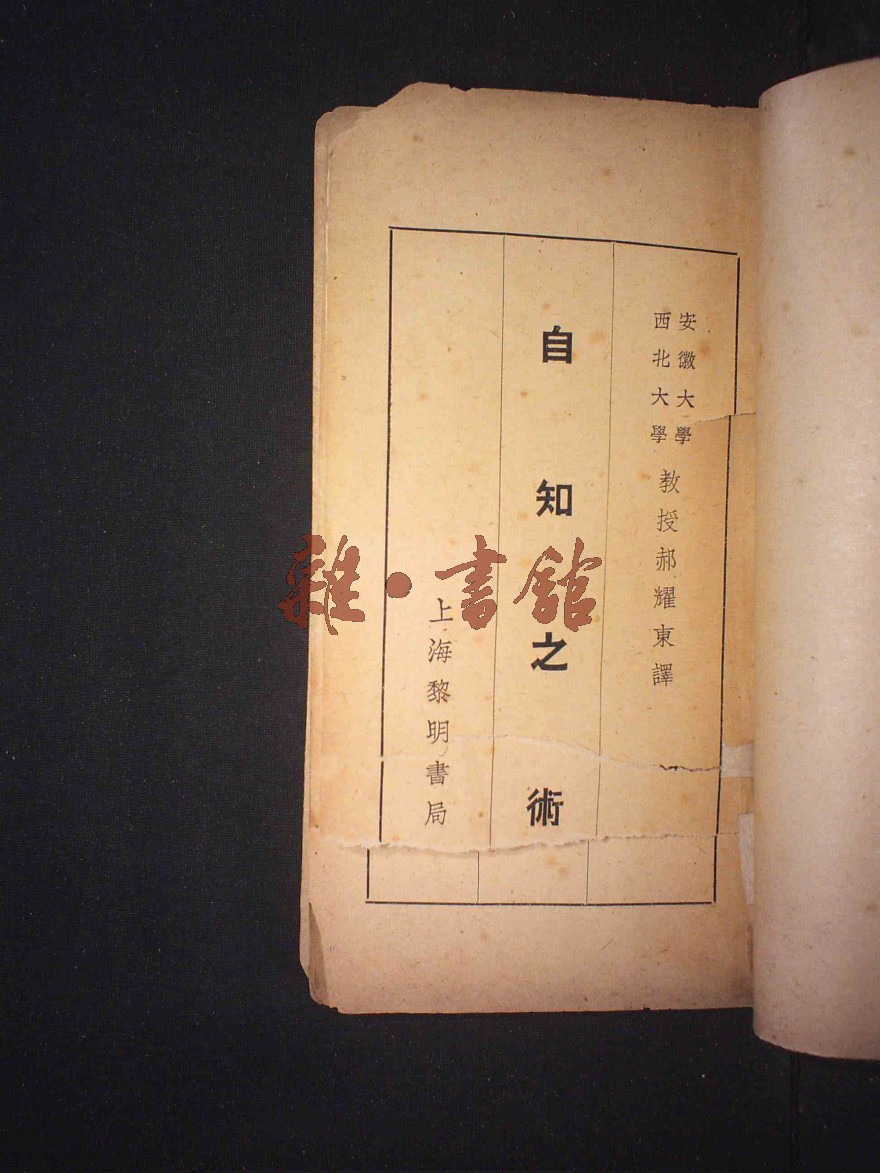 安徽大學
西北大學
教授郝耀東譯
自知之術
上海黎明書局
雜·書館